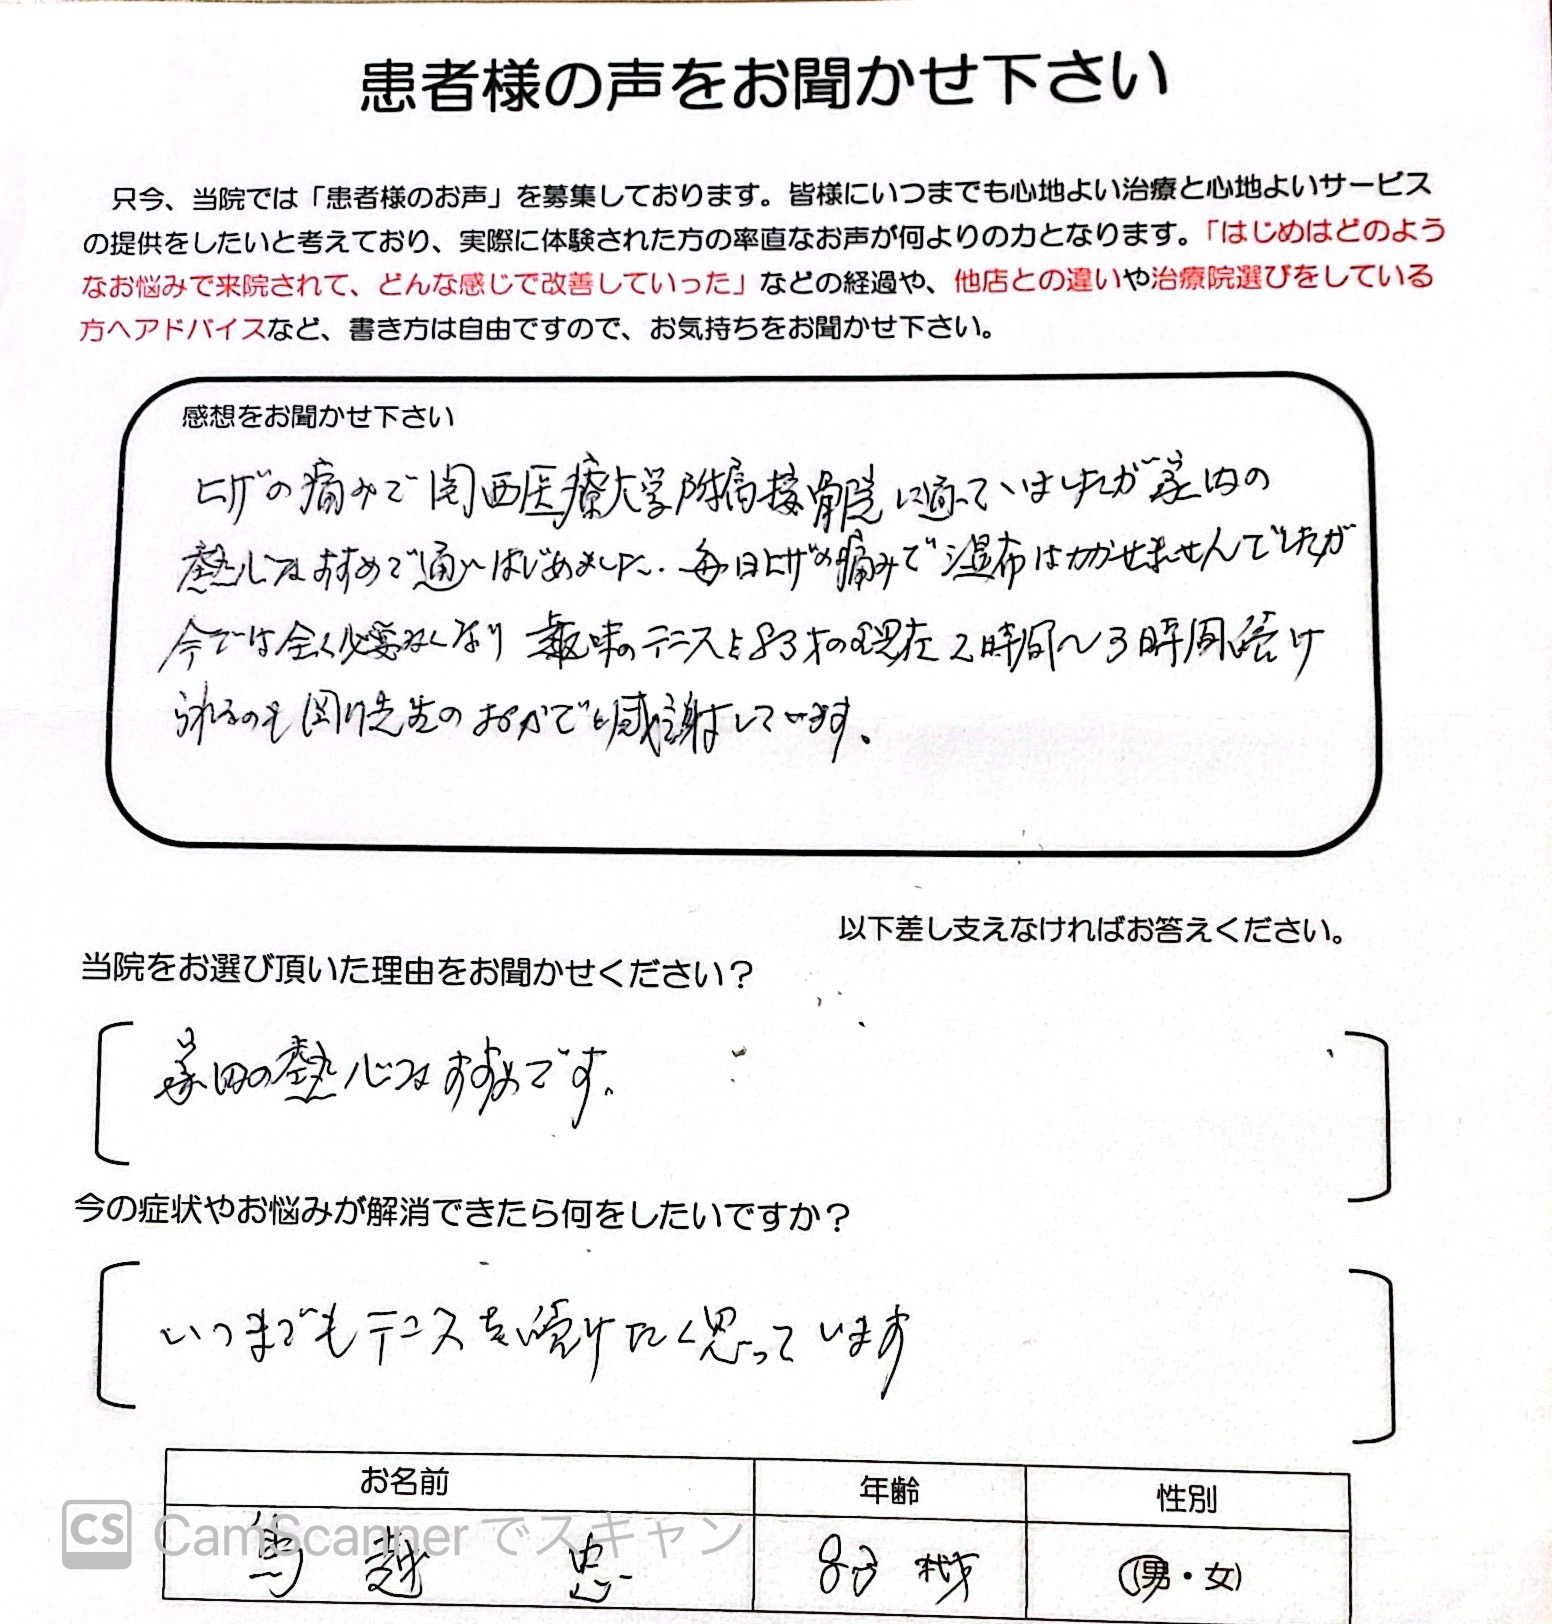 患者様の声をお聞かせ下さい
只今、当院では「患者様のお声」を募集しております。皆様にいつまでも心地よい治療と心地よいサービス
の提供をしたいと考えており、実際に体験された方の率直なお声が何よりの力となります。「はじめはどのよう
なお悩みで来院されて、どんな感じで改善していった」などの経過や、他店との違いや治療院選びをしている
方へアドバイスなど、書き方は自由ですので、お気持ちをお聞かせ下さい。
感想をお聞かせ下さい
ヒザの痛みで関西医療大学附属接骨院に通っていましたが家内の
熱心なすすめで通いはじめました. 毎日ヒザの痛みで湿布はかかせませんでしたが
今では全く必要なくなり 趣味のテニスも83才の現在2時間〜3時間続け
られるのも 先生のおかげと感謝しています。
以下差し支えなければお答えください。
当院をお選び頂いた理由をお聞かせください？
家内の熱心なすすめです。
今の症状やお悩みが解消できたら何をしたいですか？
いつまでもテニスを続けたく思っています
お名前 年齢 性別
馬越 忠 83 男・女
CS CamScannerでスキャン